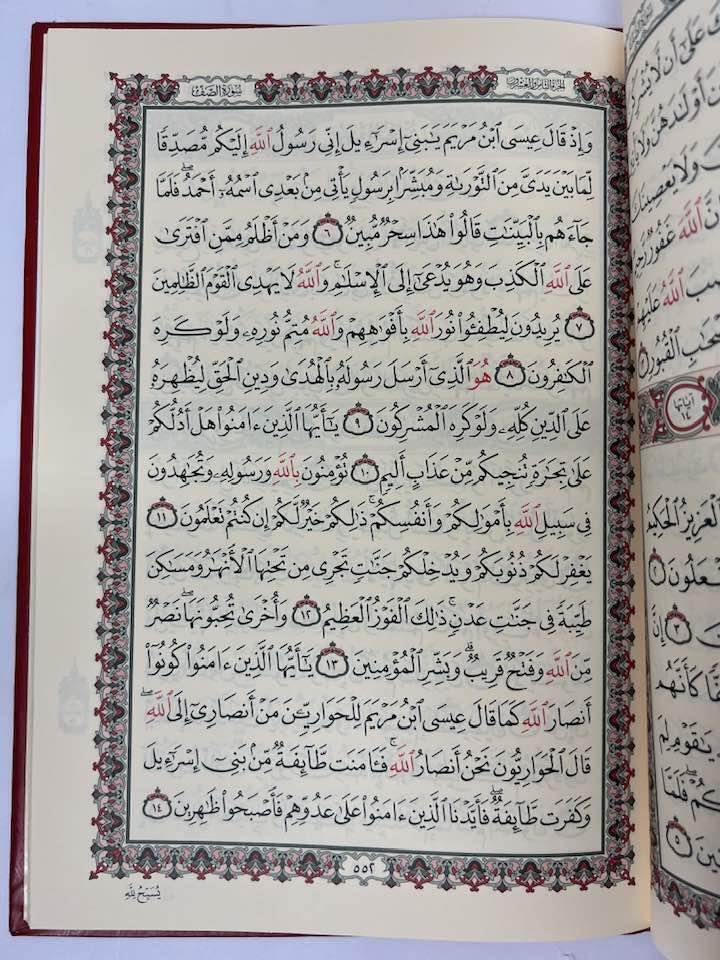 الجزء الثامن والعشرون
سورة الصف
وَإِذْ قَالَ عِيسَى ٱبْنُ مَرْيَمَ يَٰبَنِىٓ إِسْرَٰٓءِيلَ إِنِّى رَسُولُ ٱللَّهِ إِلَيْكُم مُّصَدِّقًا
لِّمَا بَيْنَ يَدَىَّ مِنَ ٱلتَّوْرَىٰةِ وَمُبَشِّرًۢا بِرَسُولٍ يَأْتِى مِنۢ بَعْدِى ٱسْمُهُۥٓ أَحْمَدُ ۖ فَلَمَّا
جَآءَهُم بِٱلْبَيِّنَٰتِ قَالُوا۟ هَٰذَا سِحْرٌ مُّبِينٌ ٦ وَمَنْ أَظْلَمُ مِمَّنِ ٱفْتَرَىٰ
عَلَى ٱللَّهِ ٱلْكَذِبَ وَهُوَ يُدْعَىٰٓ إِلَى ٱلْإِسْلَٰمِ ۚ وَٱللَّهُ لَا يَهْدِى ٱلْقَوْمَ ٱلظَّٰلِمِينَ
٧ يُرِيدُونَ لِيُطْفِـُٔوا۟ نُورَ ٱللَّهِ بِأَفْوَٰهِهِمْ وَٱللَّهُ مُتِمُّ نُورِهِۦ وَلَوْ كَرِهَ
ٱلْكَٰفِرُونَ ٨ هُوَ ٱلَّذِىٓ أَرْسَلَ رَسُولَهُۥ بِٱلْهُدَىٰ وَدِينِ ٱلْحَقِّ لِيُظْهِرَهُۥ
عَلَى ٱلدِّينِ كُلِّهِۦ وَلَوْ كَرِهَ ٱلْمُشْرِكُونَ ٩ يَٰٓأَيُّهَا ٱلَّذِينَ ءَامَنُوا۟ هَلْ أَدُلُّكُمْ
عَلَىٰ تِجَٰرَةٍ تُنجِيكُم مِّنْ عَذَابٍ أَلِيمٍ ١٠ تُؤْمِنُونَ بِٱللَّهِ وَرَسُولِهِۦ وَتُجَٰهِدُونَ
فِى سَبِيلِ ٱللَّهِ بِأَمْوَٰلِكُمْ وَأَنفُسِكُمْ ۚ ذَٰلِكُمْ خَيْرٌ لَّكُمْ إِن كُنتُمْ تَعْلَمُونَ ١١
يَغْفِرْ لَكُمْ ذُنُوبَكُمْ وَيُدْخِلْكُمْ جَنَّٰتٍ تَجْرِى مِن تَحْتِهَا ٱلْأَنْهَٰرُ وَمَسَٰكِنَ
طَيِّبَةً فِى جَنَّٰتِ عَدْنٍ ۚ ذَٰلِكَ ٱلْفَوْزُ ٱلْعَظِيمُ ١٢ وَأُخْرَىٰ تُحِبُّونَهَا ۖ نَصْرٌ
مِّنَ ٱللَّهِ وَفَتْحٌ قَرِيبٌ ۗ وَبَشِّرِ ٱلْمُؤْمِنِينَ ١٣ يَٰٓأَيُّهَا ٱلَّذِينَ ءَامَنُوا۟ كُونُوٓا۟
أَنصَارَ ٱللَّهِ كَمَا قَالَ عِيسَى ٱبْنُ مَرْيَمَ لِلْحَوَارِيِّـۧنَ مَنْ أَنصَارِىٓ إِلَى ٱللَّهِ ۖ
قَالَ ٱلْحَوَارِيُّونَ نَحْنُ أَنصَارُ ٱللَّهِ ۖ فَـَٔامَنَت طَّآئِفَةٌ مِّنۢ بَنِىٓ إِسْرَٰٓءِيلَ
وَكَفَرَت طَّآئِفَةٌ ۖ فَأَيَّدْنَا ٱلَّذِينَ ءَامَنُوا۟ عَلَىٰ عَدُوِّهِمْ فَأَصْبَحُوا۟ ظَٰهِرِينَ ١٤
٥٥٢
يُسَبِّحُ لِلَّهِ
عَلَىٰٓ أَن لَّا
أَوْلَٰدَهُنَّ وَلَا
وَلَا يَعْصِينَكَ
ٱللَّهَ غَفُورٌ
ٱللَّهُ
ٱلْقُبُورِ
آياتها
١٤
ٱلْعَزِيزُ ٱلْحَكِيمُ
٢
٣ إِنَّ
كَأَنَّهُم
يَٰقَوْمِ لِمَ
فَلَمَّا
٥